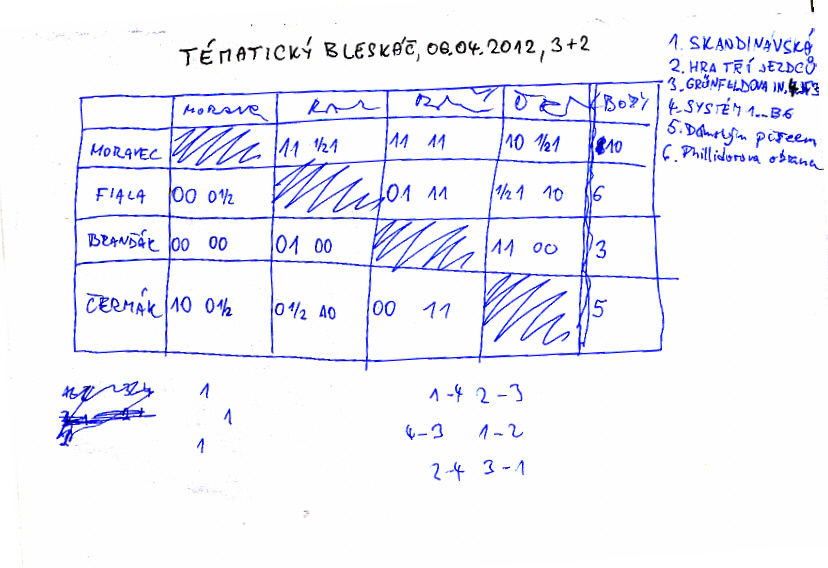 TÉMATICKÝ BLESKÁČ, 06.04.2012, 3+2
1. SKANDINÁVSKÁ
2. HRA TŘÍ JEZDCŮ
3. GRÜNFELDOVA IN.
4. SYSTÉM 1...B6
5. Dámským pěšcem
6. Phillidorova obrana
MORAVEC BODY
MORAVEC 11 ½1 11 11 10 ½1 10
FIALA 00 0½ 01 11 ½1 10 6
BRANDÁK 00 00 01 00 11 00 3
ČERMÁK 10 0½ 0½ 10 00 11 5
1 1-4 2-3
1 4-3 1-2
1 2-4 3-1